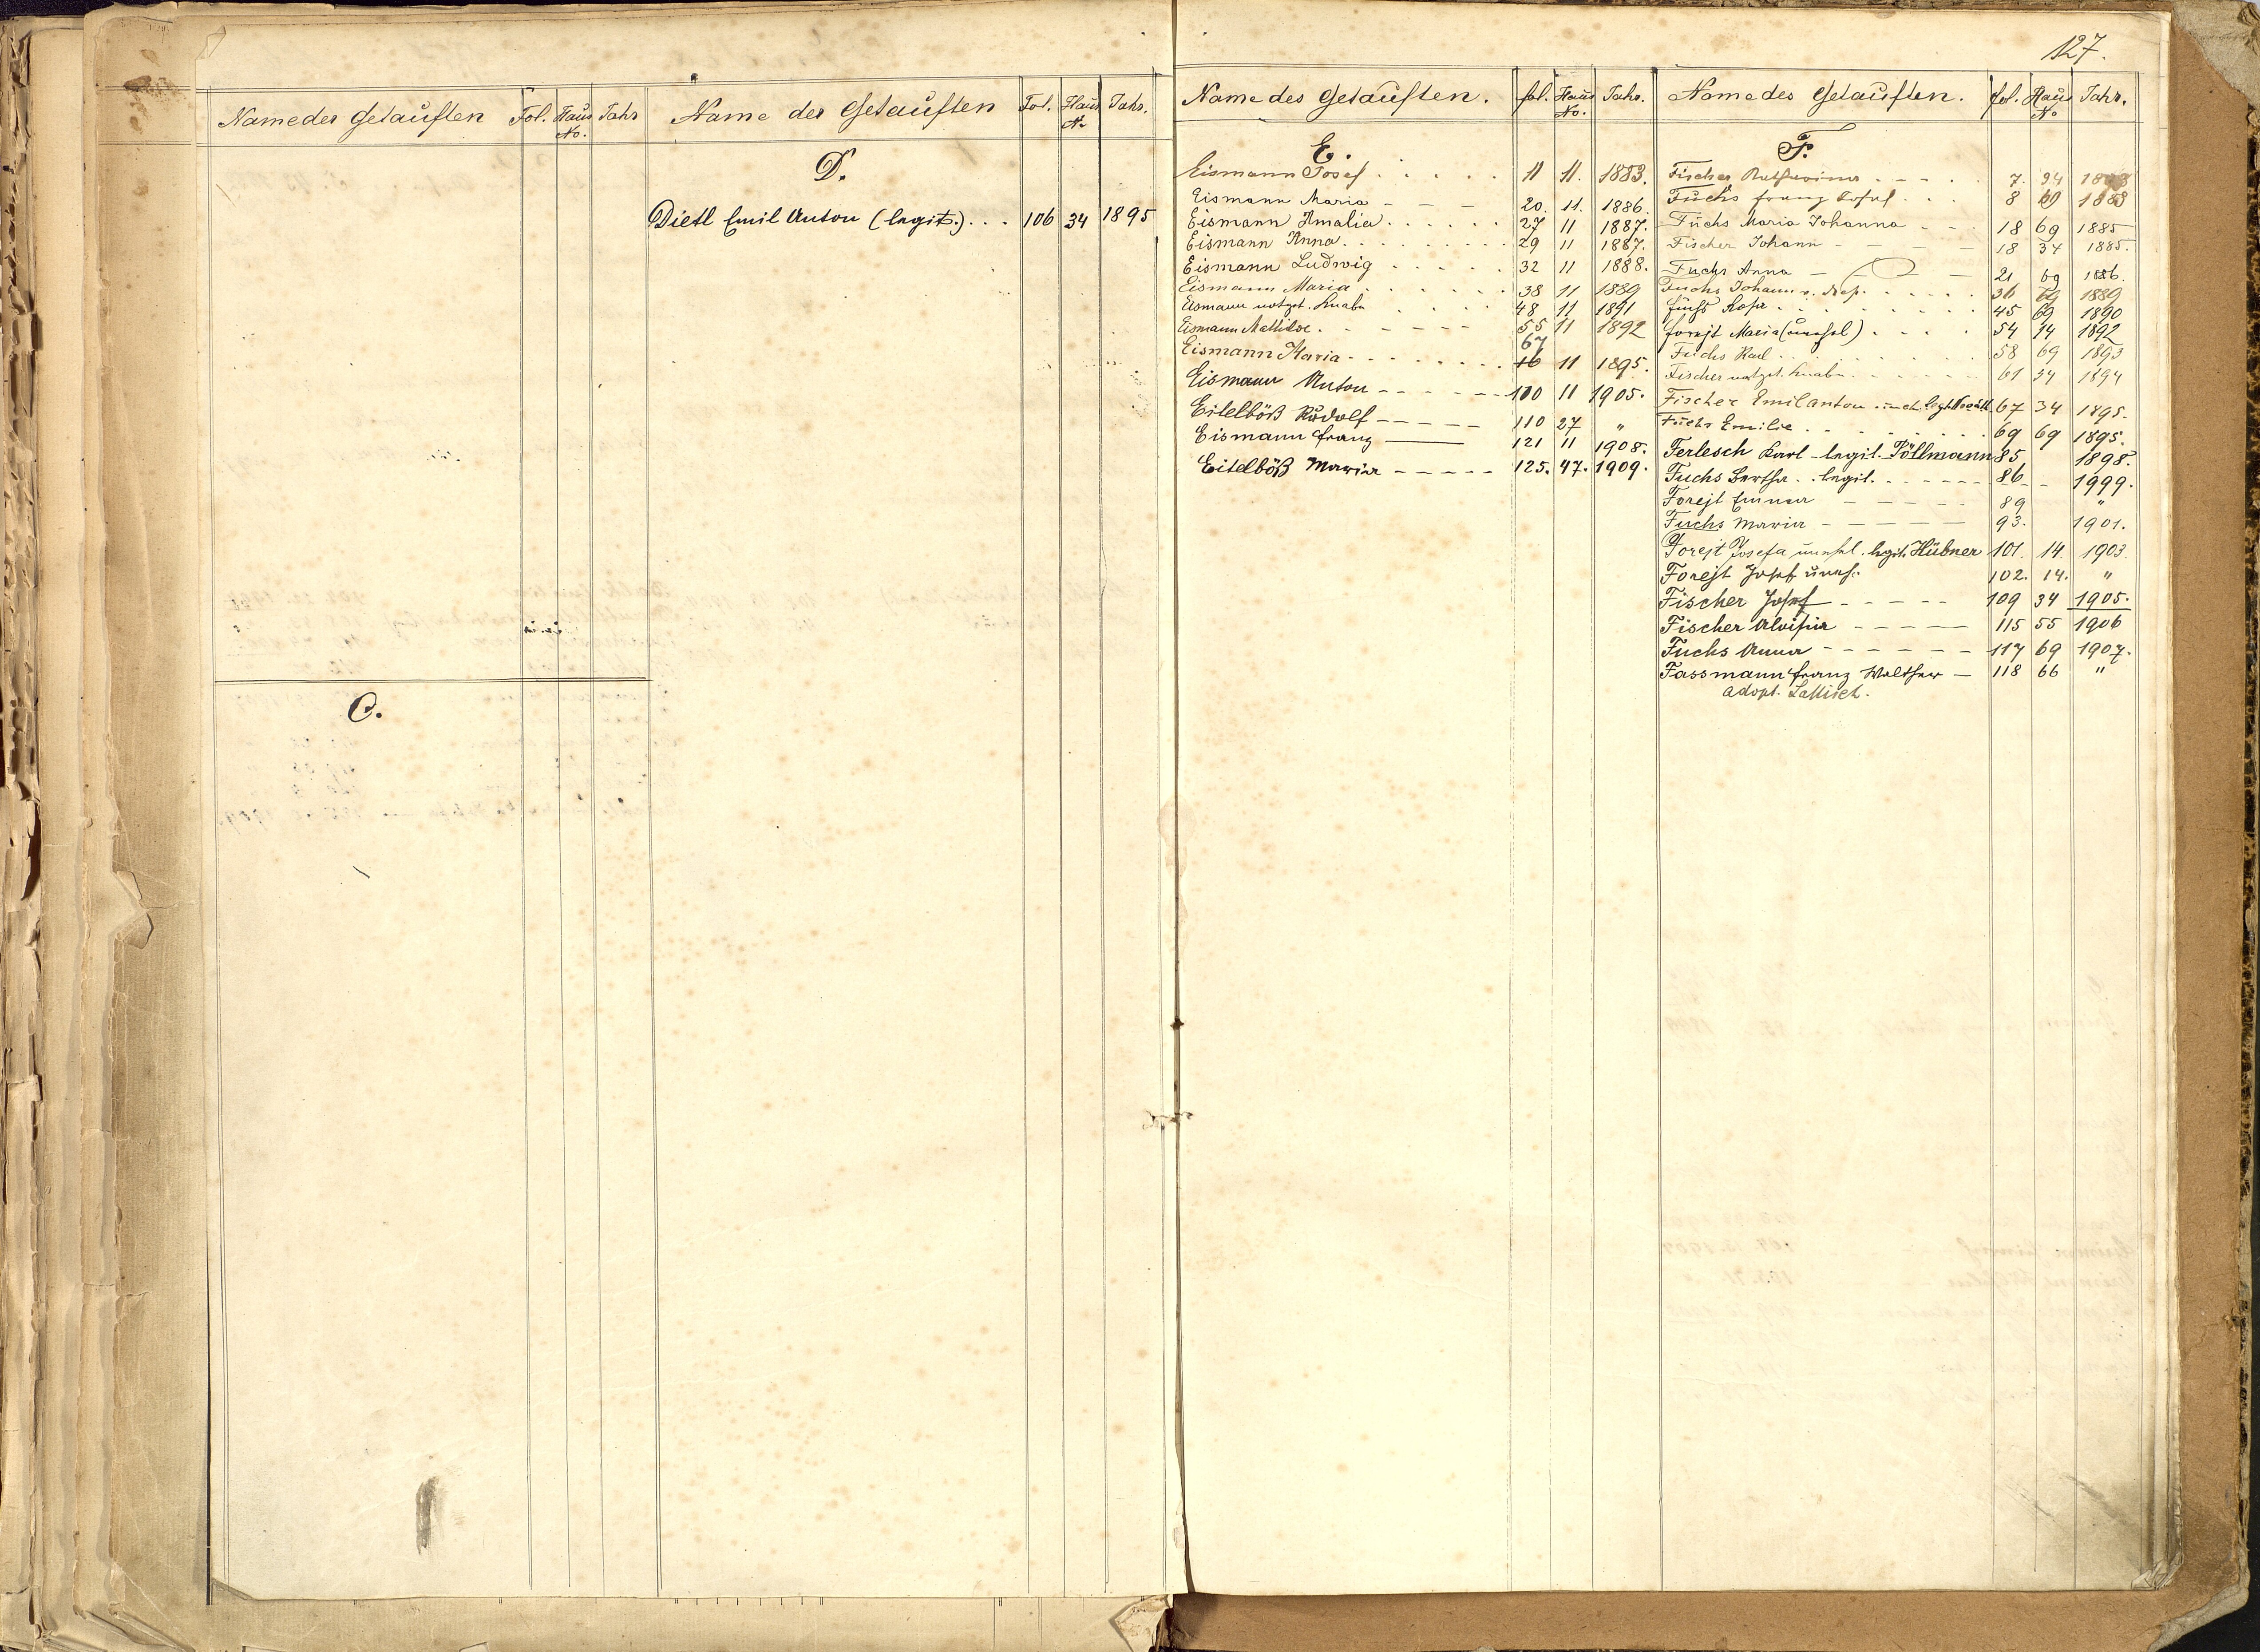 127.
Name der Getauften Fol. Haus No. Jahr
C.
Name der Getauften Fol. Haus N. Jahr.
D.
Dietl Emil Anton (legit.) . . . 106 34 1895
Name des Getauften. fol. Haus No. Jahr.
E.
Eismann Josef . . . . . 11 11. 1883.
Eismann Maria - - - 20. 11. 1886.
Eismann Amalia . . . . . . 27 11 1887.
Eismann Anna . . . . . . . . 29 11 1887.
Eismann Ludwig . . . . . 32 11 1888.
Eismann Maria . . . . . . 38 11 1889
Eismann notget. Knabe . . . . 48 11 1891
Eismann Mathilde . . - - - - - 55 11 1892
67
Eismann Maria - - - - - - . 16 11 1895.
Eismann Anton - - - - - - 100 11 1905.
Eitelböß Rudolf - - - - - 110 27 "
Eismann Franz — 121 11 1908.
Eitelböß Maria - - - - - 125. 47. 1909.
Name des Getauften. fol. Haus No Jahr.
F.
Fischer Katharina - - - - 7. 34 1883
Fuchs Franz Josef . . . 8 69 1883
Fuchs Maria Johanna - - - 18 69 1885
Fischer Johann - - - - 18 34 1885.
Fuchs Anna - - - 21 69 1886.
Fuchs Johann v. Nep. . . . . 36 69 1889
Fuchs Rosa . . . . . . . . 45 69 1890
Forejt Maria (unehl) . . . . 54 14 1892
Fuchs Karl . . . . . . . . 58 69 1893
Fischer notget. Knabe . . . . . . 61 34 1894
Fischer Emil Anton unehl. legt. 67 34 1895.
Fuchs Emilie . . . . . . . . 69 69 1895.
Ferlesch Karl - legit. Pöllmann 85 1898.
Fuchs Bertha . . legit. - - - - - - 86 - 1999.
Forejt Emma - - - - - 89 "
Fuchs Maria - - - - - 93. 1901.
Forejt Josefa unehl. legit. Hübner 101. 14. 1903.
Forejt Josef unehl. 102. 14. "
Fischer Josef - - - - - 109 34 1905.
Fischer Aloisia - - - - - 115 55 1906
Fuchs Anna - - - - - - 117 69 1907.
Fassmann Franz Walther — 118 66 "
adopt. Lattisch.